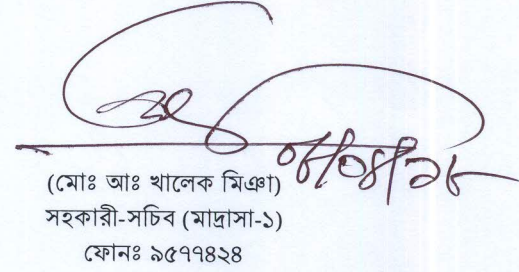 ০৮/০৪/১৮
(মোঃ আঃ খালেক মিঞা)
সহকারী-সচিব (মাদ্রাসা-১)
ফোনঃ ৯৫৭৭৪২৪